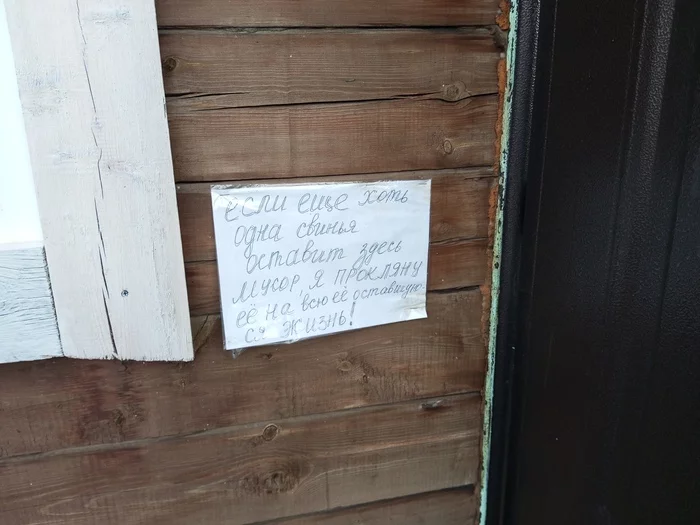 если еще хоть
одна свинья
оставит здесь
мусор я прокляну
её на всю её оставшую-
ся жизнь!